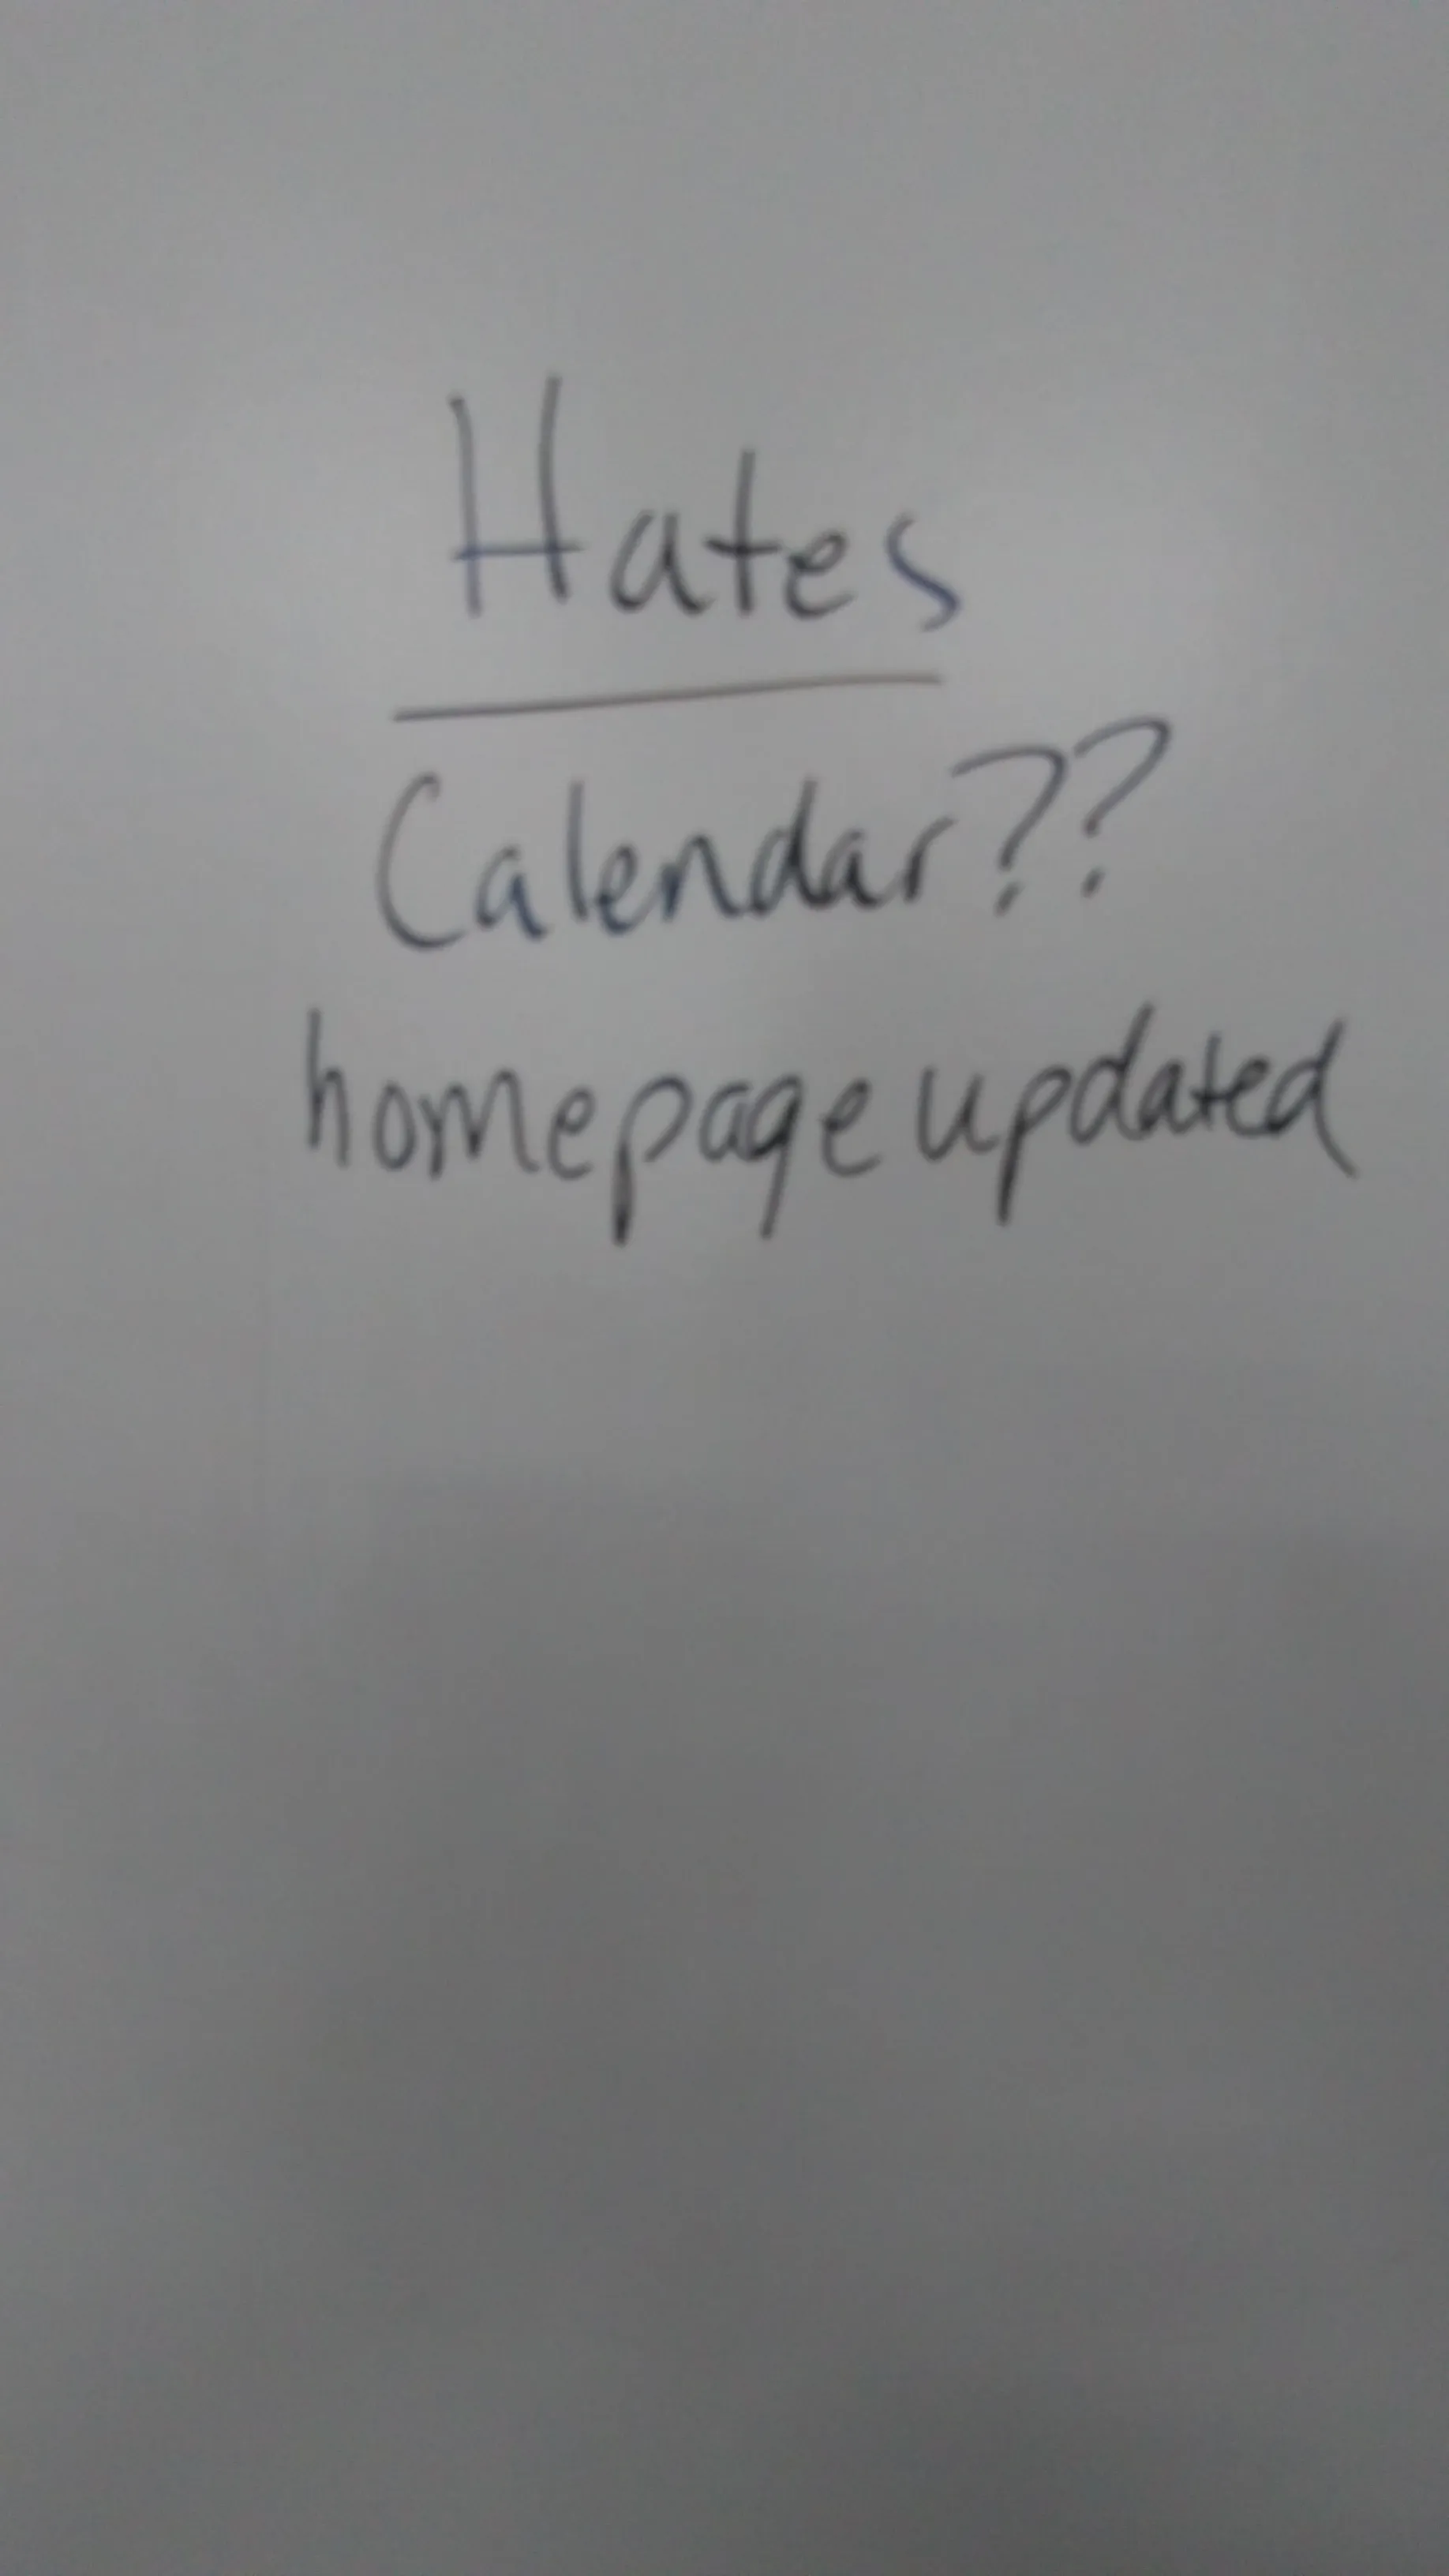 Hates
Calendar??
homepage updated